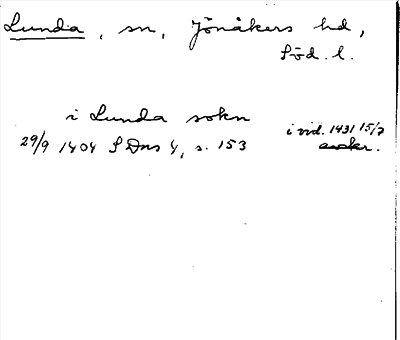 Lunda, sn, Jönåkers hd,
Söd. l.
i Lunda sokn
29/9 1404 SDns 4, s. 153
i vid. 1431 15/7
avskr.